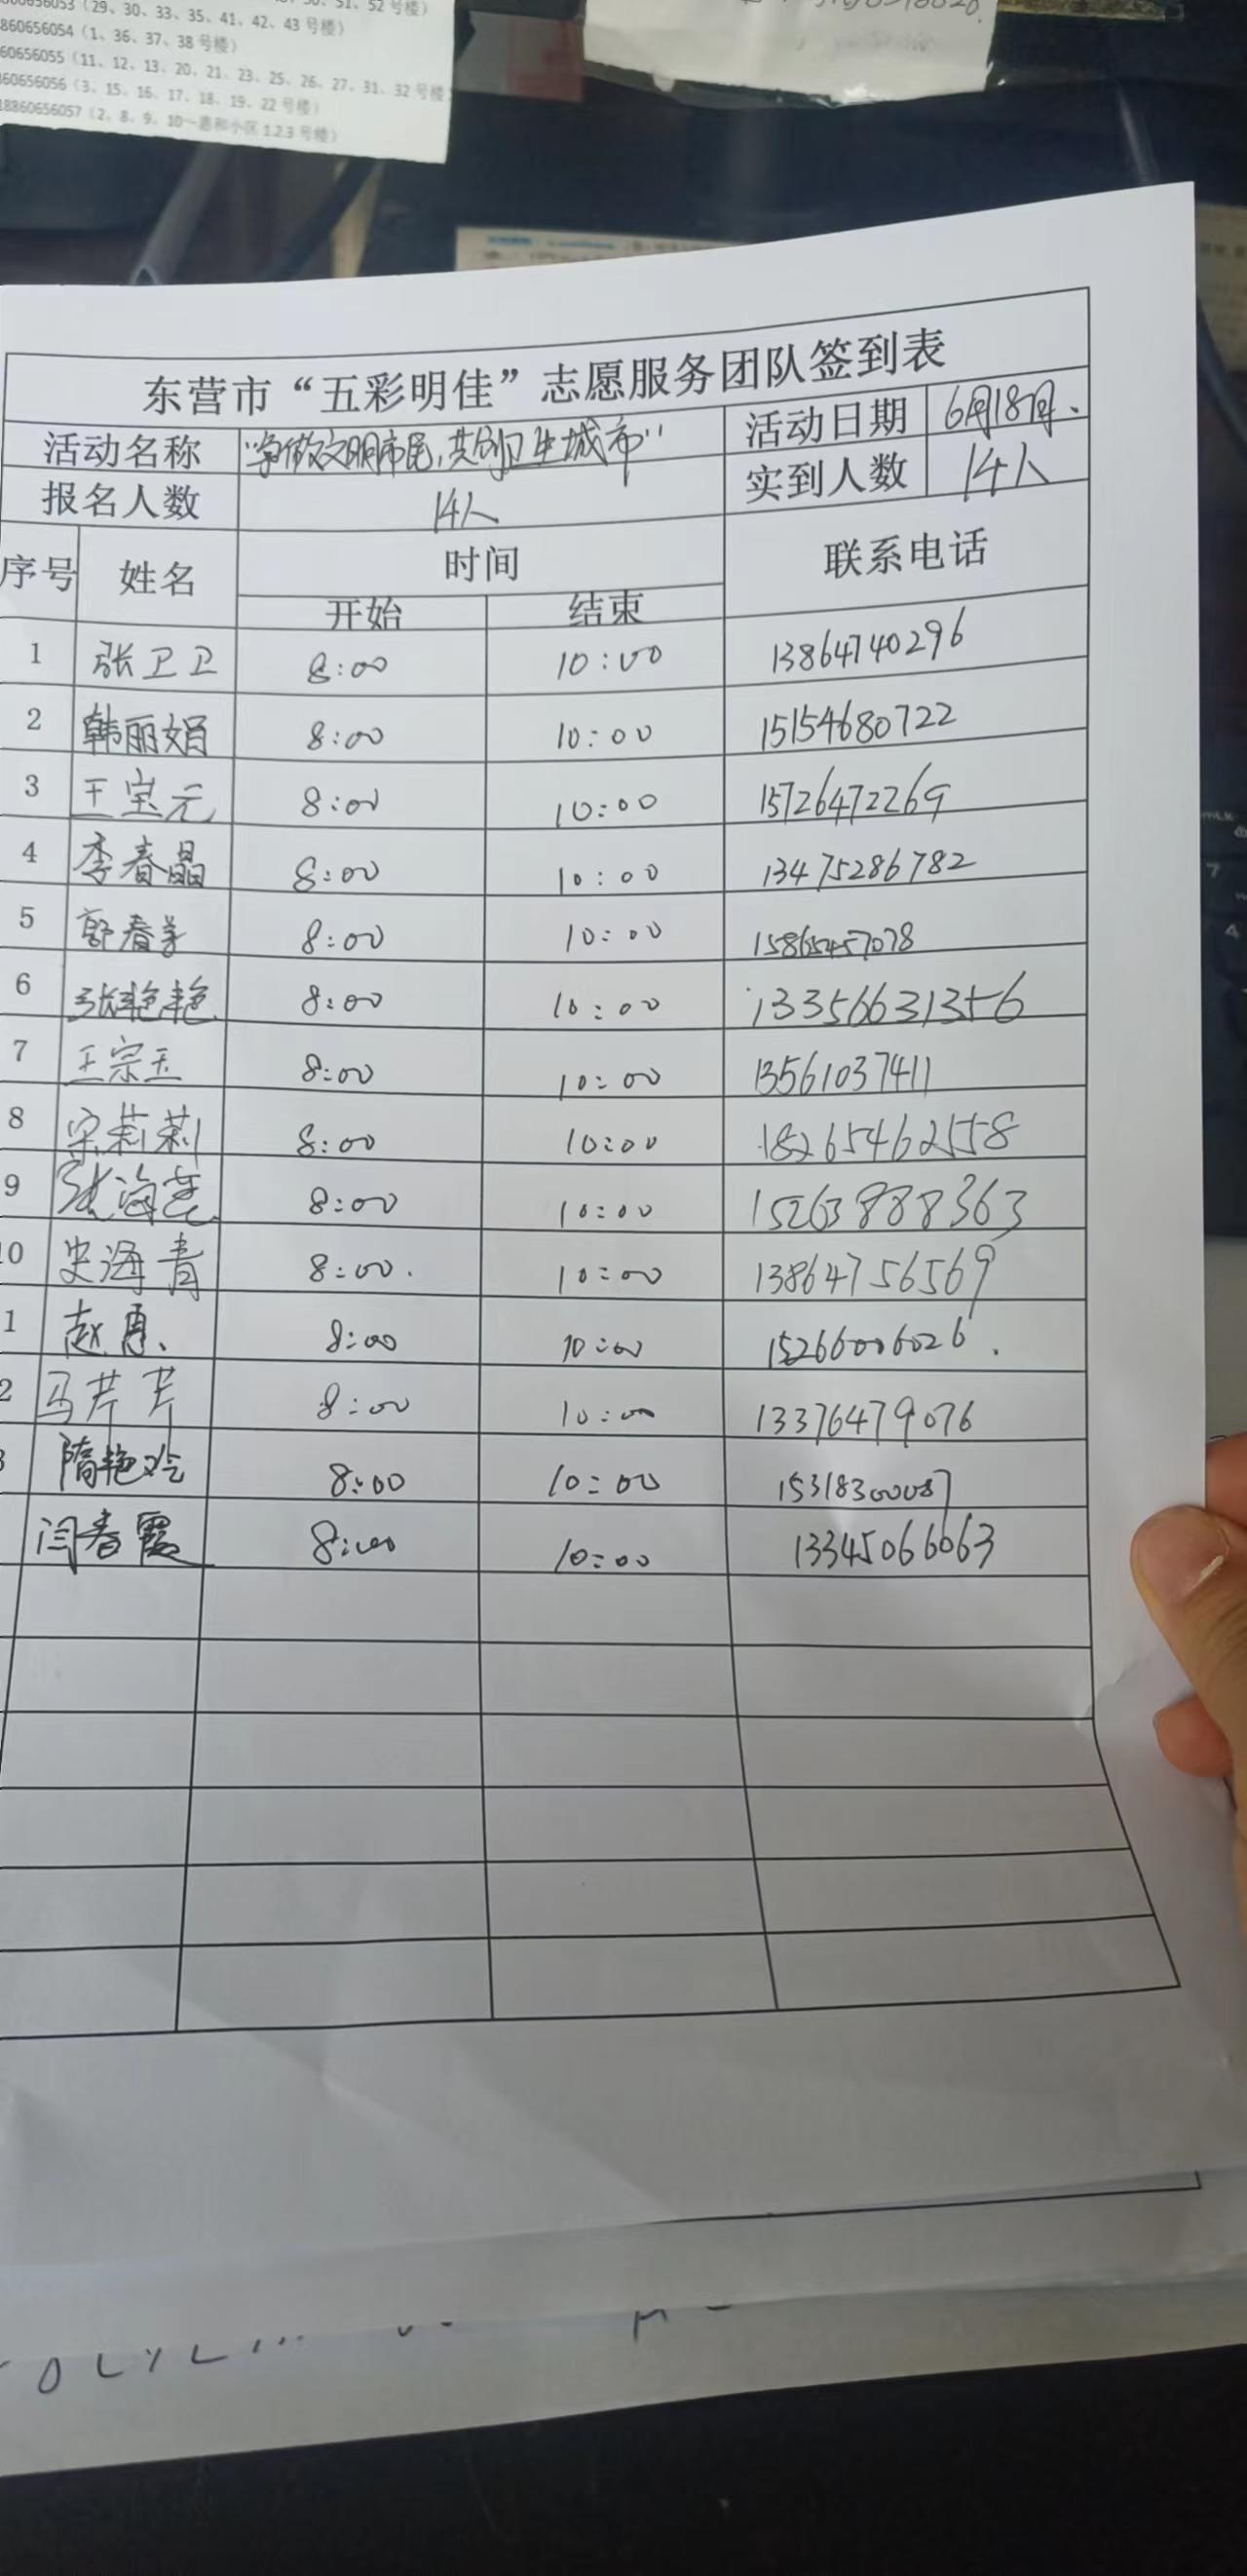 53（29、30、33、35、41、42、43 号楼）
860656054（1、36、37、38 号楼）
60656055（11、12、13、20、21、23、25、26、27、31、32 号楼
60656056（3、15、16、17、18、19、22 号楼）
18860656057（2、8、9、10一惠和小区 1.2.3 号楼）
东营市“五彩明佳”志愿服务团队签到表
活动名称 “争做文明市民，共创卫生城市” 活动日期 6月18日.
报名人数 14人 实到人数 14人
序号 姓名 时间 联系电话
开始 结束
1 张卫卫 8:00 10:00 13864740296
2 韩丽娟 8:00 10:00 15154680722
3 王宝元 8:00 10:00 15726472269
4 李春晶 8:00 10:00 13475286782
5 郭春芳 8:00 10:00 15865457078
6 张艳艳 8:00 10:00 13356631356
7 王宗玉 8:00 10:00 13561037411
8 宋莉莉 8:00 10:00 18265462558
9 张海莲 8:00 10:00 15263888363
0 史海青 8:00 10:00 13864756569
1 赵勇 8:00 10:00 15266006026
2 马芹芹 8:00 10:00 13376479076
3 隋艳玲 8:00 10:00 15318300087
闫春霞 8:00 10:00 13345066063